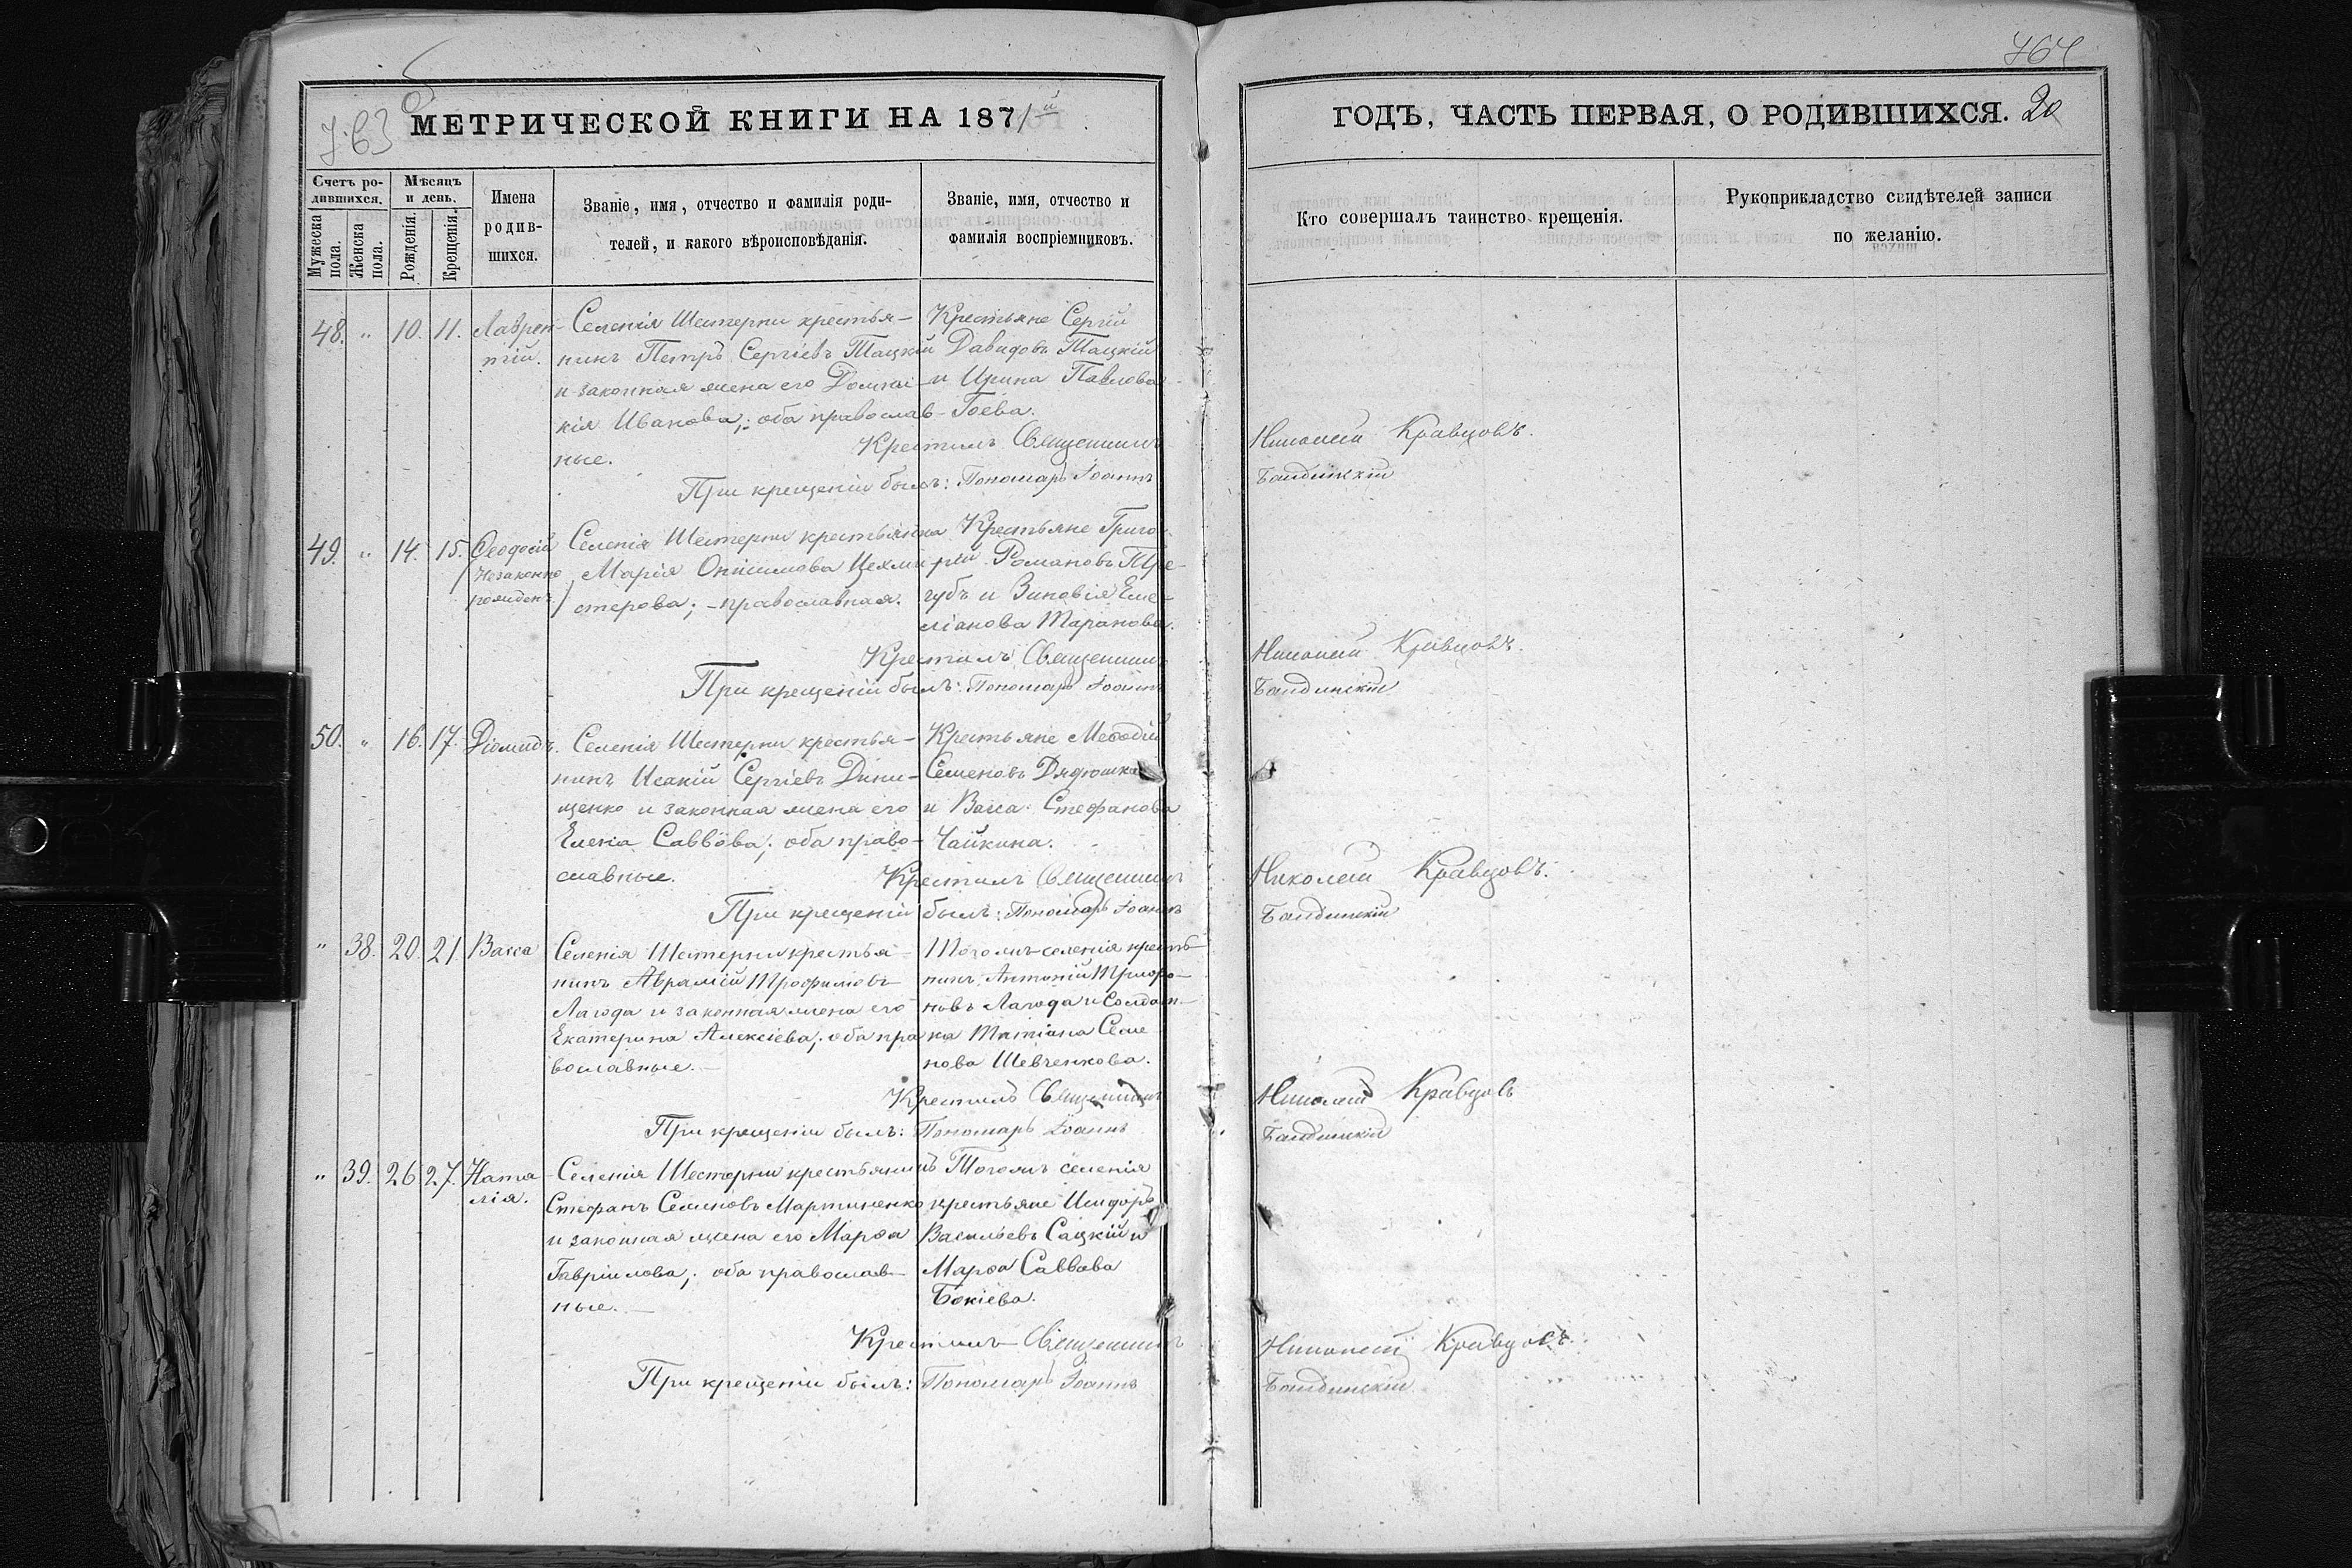 763
МЕТРИЧЕСКОЙ КНИГИ НА 1871й
Счетъ ро-
дившихся.
Мужеска
пола.
Женска
пола.
Мѣсяцъ
и день.
Рожденія.
Крещенія.
Имена
родив-
шихся.
Званіе, имя, отчество и фамилія роди-
телей, и какого вѣроисповѣданія.
Званіе, имя, отчество и
фамилія воспріемниковъ.
48. " 10. 11. Лаврен-
тій.
Селенія Шестерни крестья-
нинъ Петръ Сергіевъ Тацкій
и законная жена его Домни-
кія Иванова; оба православ-
ные.
Крестьяне Сергій
Давидовъ Тацкій
и Ирина Павлова
Гоева.
Крестилъ Священникъ
При крещеніи былъ: Пономарь Іоаннъ
49. " 14. 15. Ѳеодосій
Незаконно
рожденъ
Селенія Шестерни крестьянка
Марія Онисимова Цехми-
стерова; - православная.
Крестьяне Григо-
рій Романовъ Тре-
губъ и Зиновія Еме-
ліанова Таранова.
Крестилъ Священникъ
При крещеніи былъ: Пономарь Іоаннъ
50. " 16. 17. Діомидъ.
Селенія Шестерни крестья-
нинъ Исакій Сергіевъ
и законная жена его
Елена Саввова; оба право-
славные.
Крестьяне Меѳодій
Семеновъ Дядюшка
и Васса Стефанова
Чайкина.
Крестилъ Священникъ
При крещеніи былъ: Пономарь Іоаннъ
" 38. 20. 21. Васса
Селенія Шестерни крестья-
нинъ Аврамій Трофимовъ
Лагода и законная жена его
Екатерина Алексіева; оба пра-
вославные. -
Тогожъ селенія кресть-
нинъ Антоній Трофи-
мовъ Лагода и Солдат-
ка Татіана Семе
нова Шевченкова.
Крестилъ Священникъ
При крещеніи былъ: Пономарь Іоаннъ
" 39. 26. 27. Ната
лія.
Селенія Шестерни крестьянинъ
Стефанъ Семеновъ Мартиненко
и законная жена его Марѳа
Гавріилова; оба православ-
ные. -
Тогожъ селенія
крестьяне Исидоръ
Васильевъ Сацкій и
Марѳа Саввова
Бокіева.
Крестилъ Священникъ
При крещеніи былъ: Пономарь Іоаннъ
764
ГОДЪ, ЧАСТЬ ПЕРВАЯ, О РОДИВШИХСЯ. 20
Кто совершалъ таинство крещенія.
Рукоприкладство свидѣтелей записи
по желанію.
Николай Кравцовъ.
Бандинскій
Николай Кравцовъ.
Бандинскій
Николай Кравцовъ.
Бандинскій
Николай Кравцовъ
Бандинскій
Николай Кравцовъ.
Бандинскій